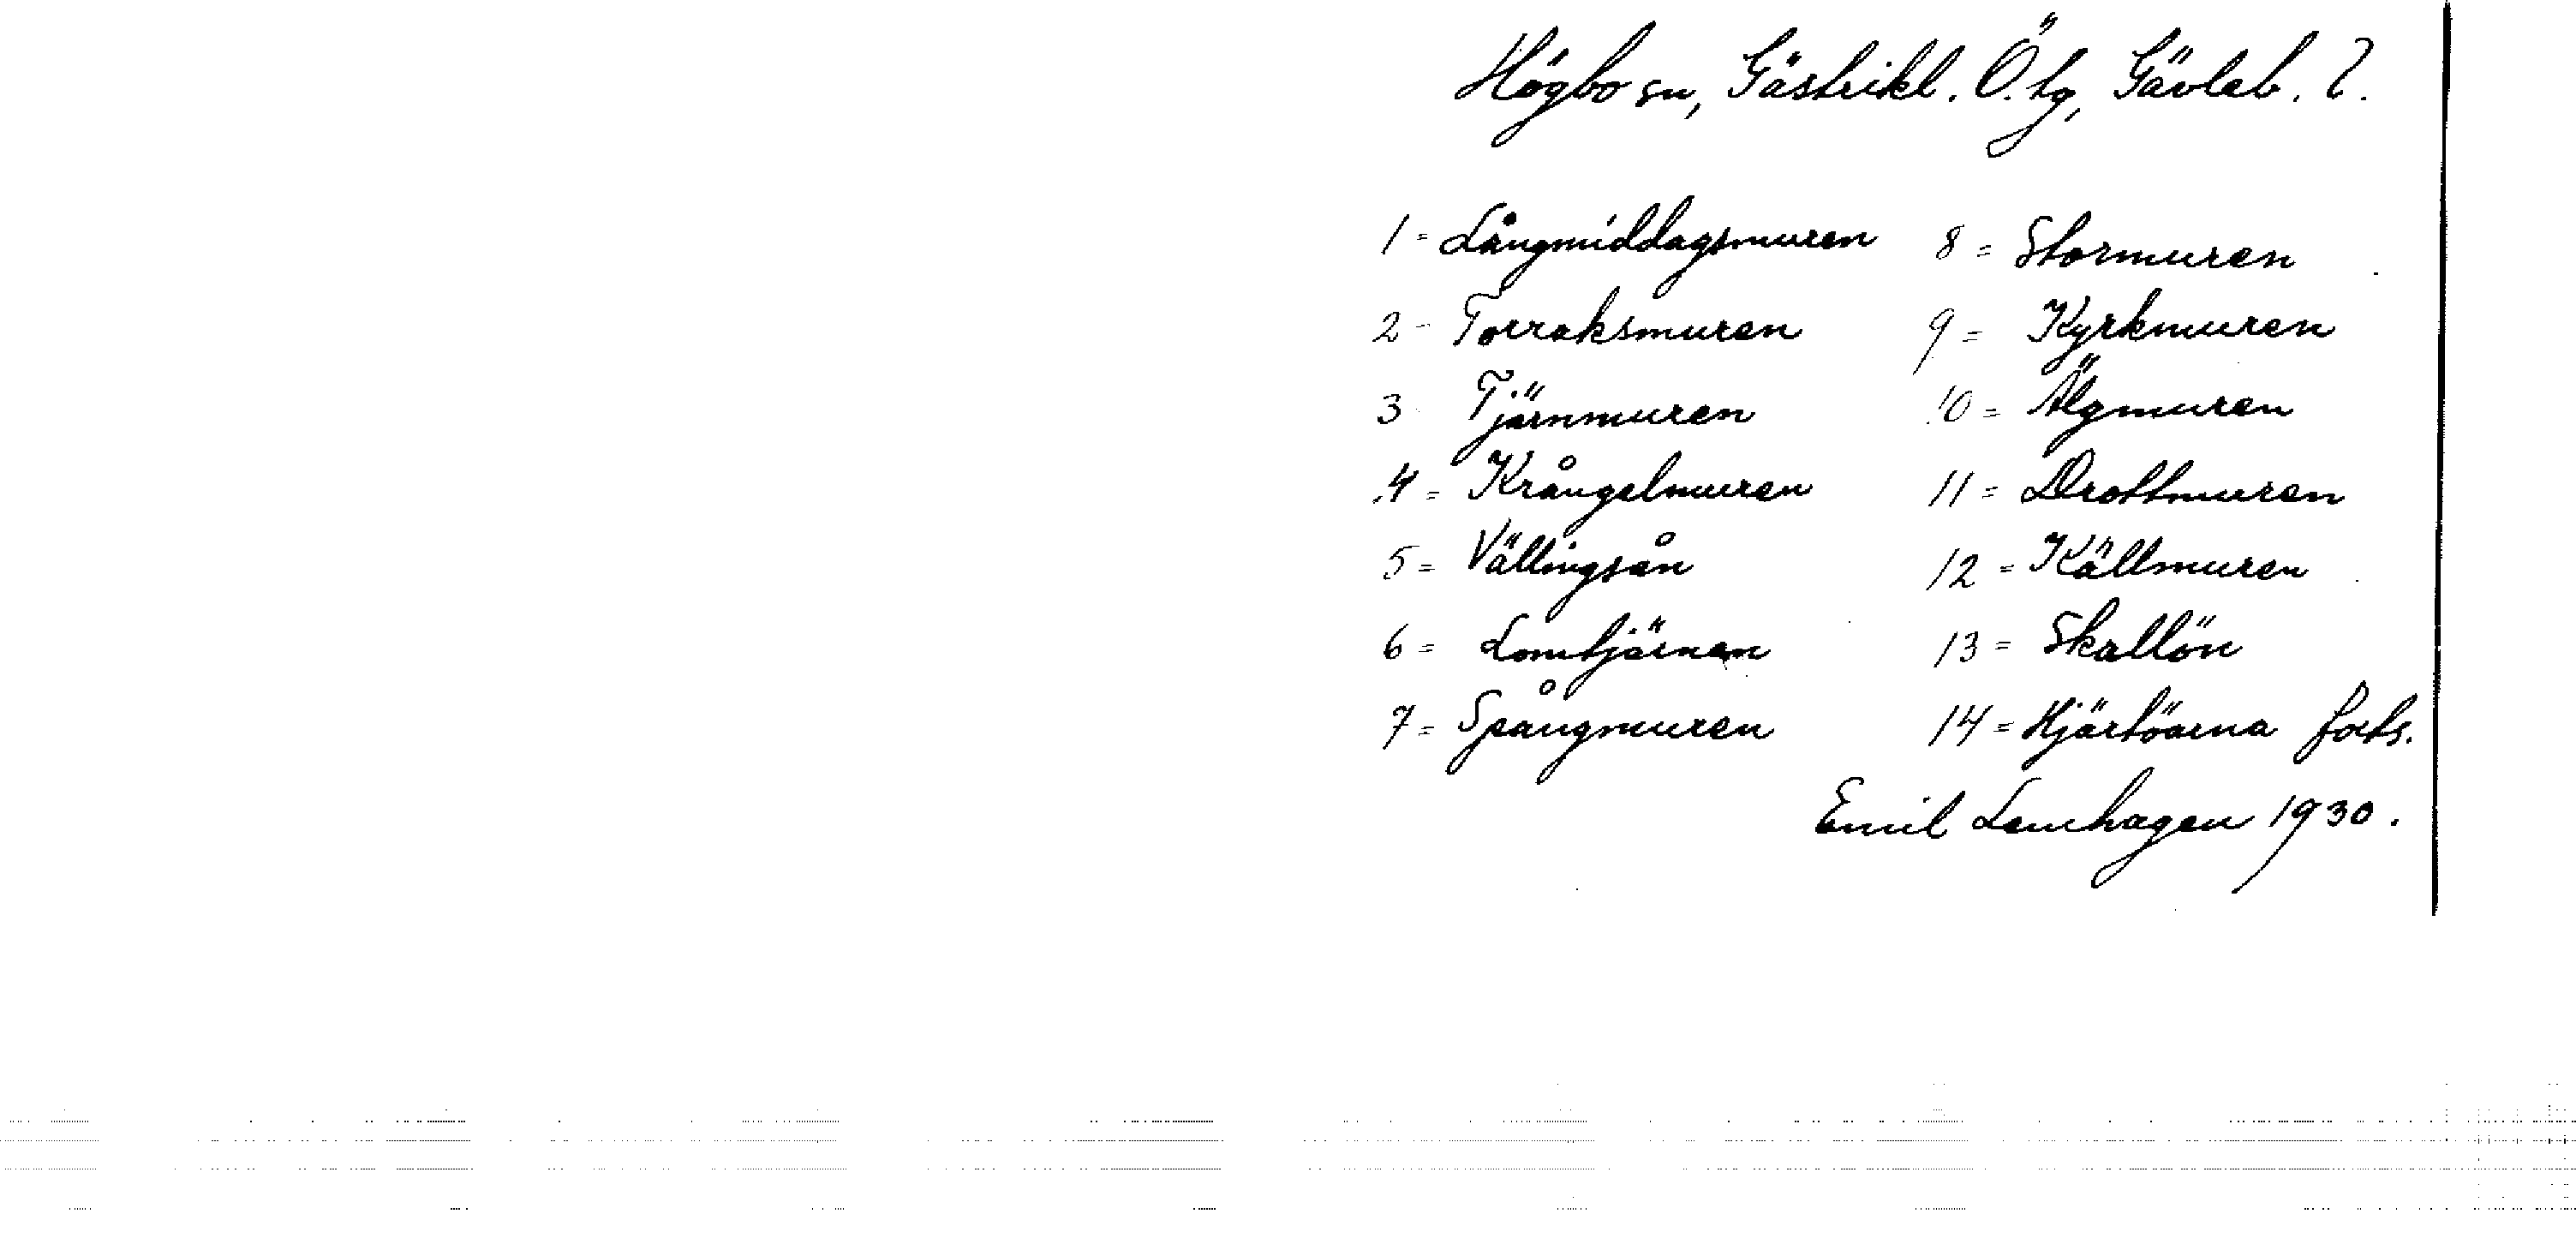 Högbo sn, Gästrikl. Ö. tg, Gävleb. l.
1 = Långmiddagsmuren
2 - Torraksmuren
3 - Tjärnmuren
4 = Krångelmuren
5 = Vällingsån
6 = Lomtjärnen
7 = Spångmuren
8 = Stormuren
9 = Kyrkmuren
10 = Älgmuren
11 = Drottmuren
12 = Källmuren
13 = Skallön
14 = Hjärtöarna forts.
Emil Lemhagen 1930.